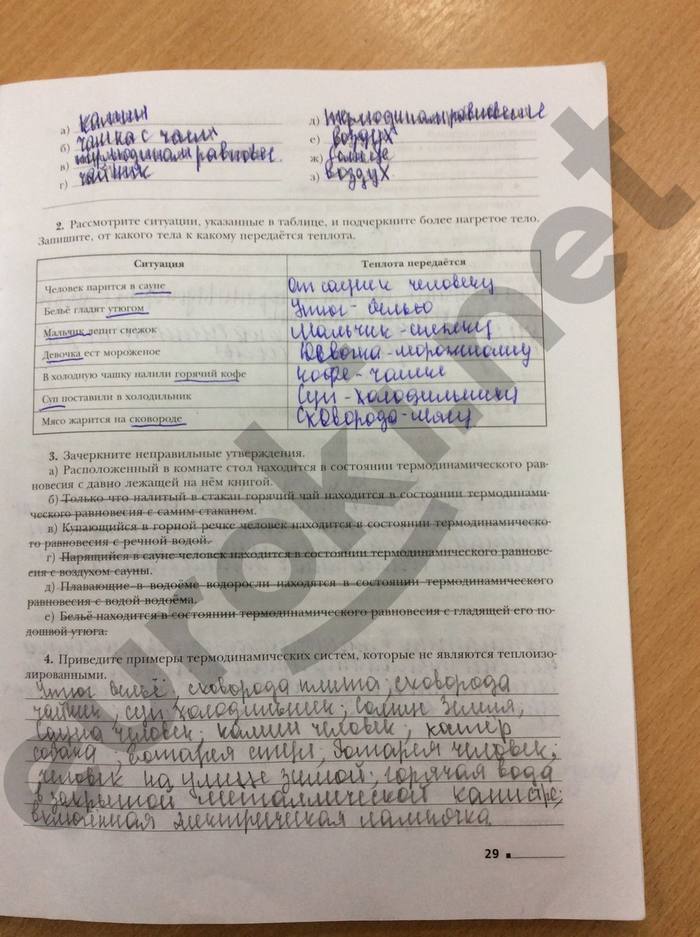 а) камин
б) чашка с чаем
в) термодинам равновес.
г) чайник
д) термодинам равновесие
е) воздух
ж) солнце
з) воздух
2. Рассмотрите ситуации, указанные в таблице, и подчеркните более нагретое тело.
Запишите, от какого тела к какому передаётся теплота.
Ситуация Теплота передаётся
Человек парится в сауне От сауны к человеку
Бельё гладят утюгом Утюг - белью
Мальчик лепит снежок Мальчик - снежку
Девочка ест мороженое Девочка - мороженому
В холодную чашку налили горячий кофе Кофе - чашке
Суп поставили в холодильник Суп - холодильнику
Мясо жарится на сковороде Сковорода - мясу
3. Зачеркните неправильные утверждения.
а) Расположенный в комнате стол находится в состоянии термодинамического рав-
новесия с давно лежащей на нём книгой.
б) Только что налитый в стакан горячий чай находится в состоянии термодинами-
ческого равновесия с самим стаканом.
в) Купающийся в горной речке человек находится в состоянии термодинамическо-
го равновесия с речной водой.
г) Парящийся в сауне человек находится в состоянии термодинамического равнове-
сия с воздухом сауны.
д) Плавающие в водоёме водоросли находятся в состоянии термодинамического
равновесия с водой водоёма.
е) Бельё находится в состоянии термодинамического равновесия с гладящей его по-
дошвой утюга.
4. Приведите примеры термодинамических систем, которые не являются теплоизо-
лированными.
Утюг бельё; сковорода плита; сковорода
чайник; суп холодильник; Солнце Земля,
Сауна человек; камин человек; костёр
собака; батарея стена; батарея человек;
человек на улице зимой; горячая вода
в закрытой металлической канистре;
включённая электрическая лампочка.
29
eurokinet